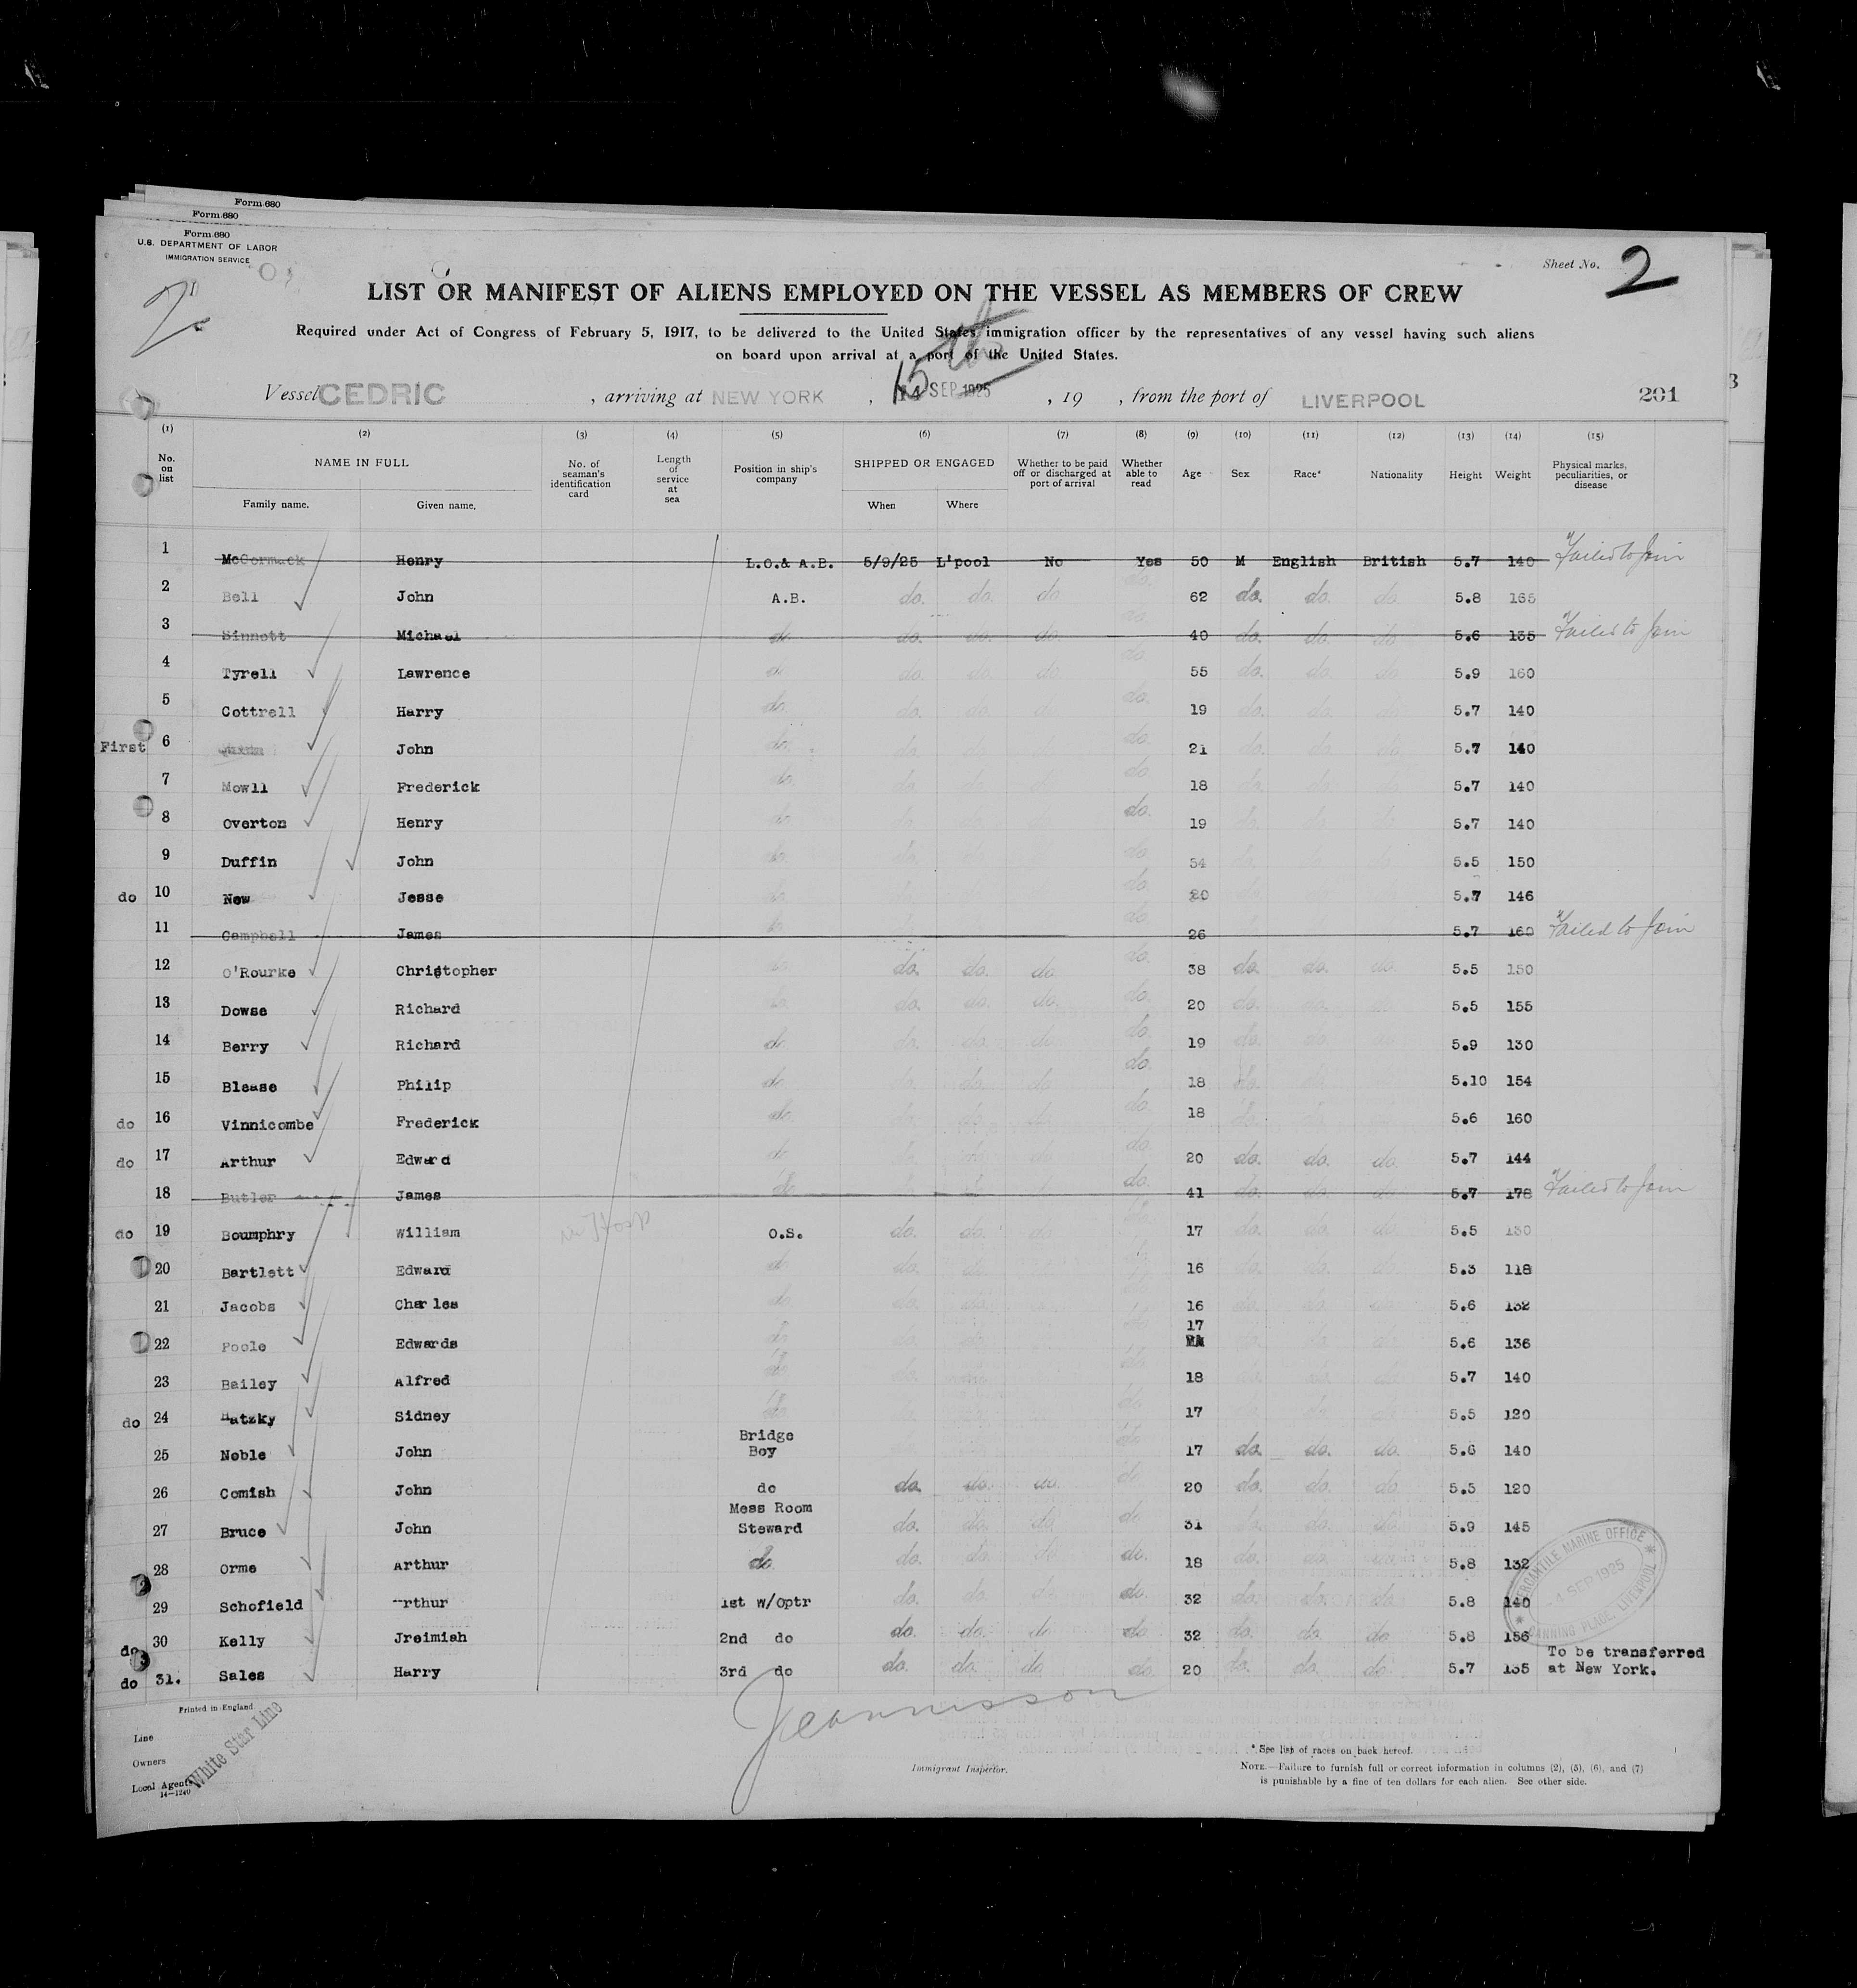 Form 680
Form 680
Form 680
U.S. DEPARTMENT OF LABOR
IMMIGRATION SERVICE
Sheet No. 2
LIST OR MANIFEST OF ALIENS EMPLOYED ON THE VESSEL AS MEMBERS OF CREW
Required under Act of Congress of February 5, 1917, to be delivered to the United States immigration officer by the representatives of any vessel having such aliens
on board upon arrival at a port of the United States.
Vessel CEDRIC, arriving at NEW YORK, 15 14 SEP 1925, 19 , from the port of LIVERPOOL 201
(1) (2) (3) (4) (5) (6) (7) (8) (9) (10) (11) (12) (13) (14) (15)
No. on list NAME IN FULL Family name. Given name. No. of seaman's identification card Length of service at sea Position in ship's company SHIPPED OR ENGAGED When Where Whether to be paid off or discharged at port of arrival Whether able to read Age Sex Race* Nationality Height Weight Physical marks, peculiarities, or disease
1 McCormack Henry L.O.& A.B. 5/9/25 L'pool No Yes 50 M English British 5.7 140 Failed to Join
2 Bell John A.B. do. do. do do. 62 do. do. do 5.8 165
3 Sinnott Michael do do. do. do. do. 40 do. do. do 5.6 135 Failed to Join
4 Tyrell Lawrence do do. do. do. do. 55 do. do. do 5.9 160
5 Cottrell Harry do. do. do. do. do. 19 do. do. do 5.7 140
First 6 John do. do. do. do. 21 do. do. do. 5.7 140
7 Mowll Frederick do. do. do. do 18 5.7 140
8 Overton Henry do. do. do. 19 5.7 140
9 Duffin John do. do. 54 5.5 150
do 10 New Jesse do. do. 20 5.7 146
11 Campbell James do. do. 26 5.7 160 Failed to Join
12 O'Rourke Christopher do. do. do. do do. 38 do. do. do. 5.5 150
13 Dowse Richard do. do. do. do. do. 20 do. do. do. 5.5 155
14 Berry Richard do do. do. do. do. 19 do. do. do 5.9 130
15 Blease Philip do do. do. do do. 18 do. do. 5.10 154
do 16 Vinnicombe Frederick do. do. do. do. do. 18 5.6 160
do 17 Arthur Edward do do. do do. 20 do. do. do. 5.7 144
18 Butler James do do. do do. 41 do. do. do 5.7 178 Failed to Join
do 19 Boumphry William in Hosp O.S. do. do. do 17 do. do. do 5.5 130
20 Bartlett Edward do do. do. 16 do. do. 5.3 118
21 Jacobs Charles do do. 16 do. do. do. 5.6 132
17
22 Poole Edwards do do. do 5.6 136
23 Bailey Alfred do do. 18 5.7 140
do 24 Hatzky Sidney do do 17 do. do. do. 5.5 120
Bridge
25 Noble John Boy do 17 do. do. do. 5.6 140
26 Comish John do do. do. do. do 20 do. do. do 5.5 120
Mess Room
27 Bruce John Steward do. do. do. do 31 do. do. do 5.9 145
28 Orme Arthur do. do. do. do do. 18 do. do. 5.8 132
29 Schofield rthur 1st w/Optr do. do. do do. 32 do. do. do. 5.8 140
do 30 Kelly Jreimiah 2nd do do. do. do do 32 do. do. do 5.8 156
do 31. Sales Harry 3rd do do. do. do do. 20 do. do. do 5.7 135 To be transferred
at New York.
MERCANTILE MARINE OFFICE
4 SEP 1925
CANNING PLACE, LIVERPOOL
Printed in England
Line
Owners
Local Agents
White Star Line
14—1240
Immigrant Inspector.
* See list of races on back hereof.
NOTE.—Failure to furnish full or correct information in columns (2), (5), (6), and (7)
is punishable by a fine of ten dollars for each alien. See other side.